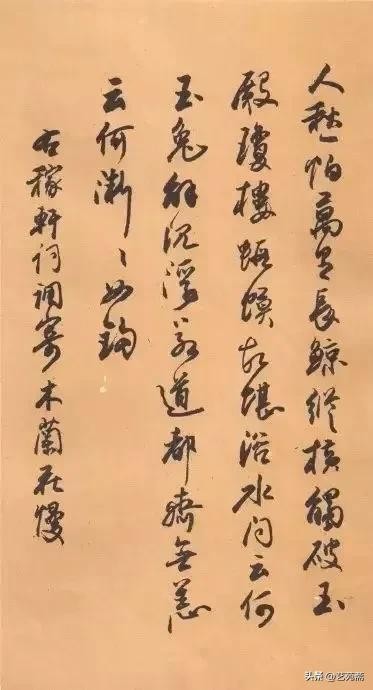 人愁怕萬里長鯨縱横觸破玉
殿瓊樓蝦蟆故堪浴水問云何
玉兔解沉浮若道都齊無恙
云何漸〻如鈎
右稼軒詞調寄木蘭花慢
头条 @艺苑斋